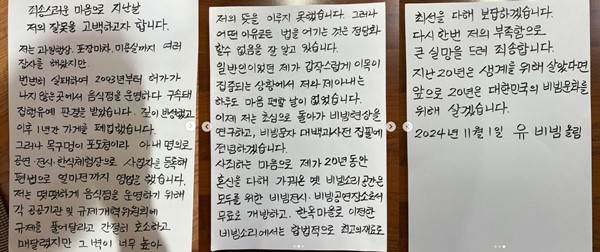 죄송스러운 마음으로 지난날
저의 잘못을 고백하고자 합니다.
저는 과일행상, 포장마차, 미용실까지 여러
장사를 해왔지만
번번히 실패하며 2003년부터 허가가
나지 않는곳에서 음식점을 운영하다 구속돼
집행유예 판결을 받았습니다. 깊이 반성했고
이후 1년간 가게를 폐업했습니다.
그러나 목구멍이 포도청이라 아내 명의로
공연·전시·한식체험장으로 사업자를 등록해
편법으로 얼마전까지 영업을 했습니다.
저는 떳떳하게 음식점을 운영하기 위해
각 공공기관 및 규제개혁위원회에
규제를 풀어달라고 간절히 호소하고
매달렸지만 그벽이 너무 높아
저의 뜻을 이루지 못했습니다. 그러나
어떤 이유로든 법을 어기는 것은 정당화
할수 없음을 잘 알고 있습니다.
일반인이었던 제가 갑작스럽게 이목이
집중되는 상황에서 저와 제아내는
하루도 마음 편할 날이 없었습니다.
이제 저는 초심으로 돌아가 비빔현상을
연구하고, 비빔문자 대백과사전 집필에
전념하겠습니다.
사죄하는 마음으로 제가 20년 동안
혼신을 다해 가꿔온 옛 비빔소리 공간은
모두를 위한 비빔전시·비빔공연장소로써
무료로 개방하고. 한옥마을로 이전한
비빔소리에서는 합법적으로 최고의재료로
최선을 다해 보답하겠습니다.
다시 한번 저의 부족함으로
큰 실망을 드려 죄송합니다.
지난 20년은 생계를 위해 살았다면
앞으로 20년은 대한민국의 비빔문화를
위해 살겠습니다.
2024년 11월 1일 유 비빔 올림